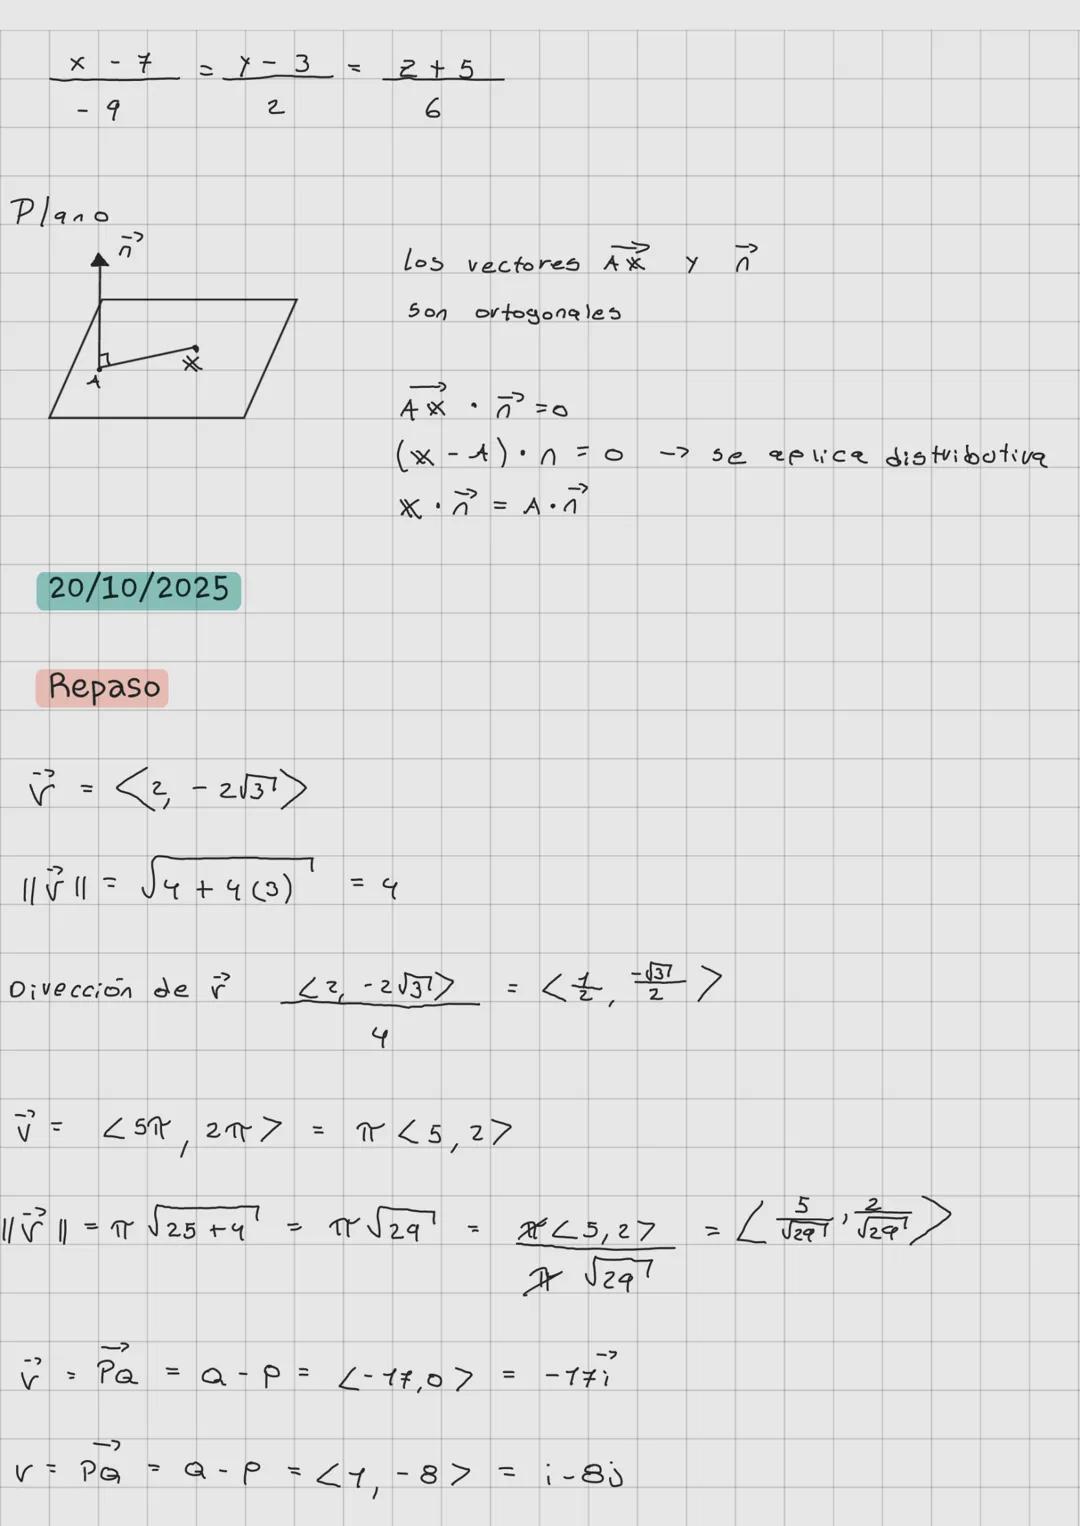 x - 7 / -9 = y - 3 / 2 = z + 5 / 6
Plano
n⃗
A
X
los vectores AX⃗ y n⃗
son ortogonales
AX⃗ · n⃗ = 0
(X - A) · n = 0 -> se aplica distributiva
X · n⃗ = A · n⃗
20/10/2025
Repaso
v⃗ = <2, -2√3>
||v⃗|| = √4 + 4(3) = 4
Dirección de v⃗ <2, -2√3> / 4 = <1/2, -√3/2>
v⃗ = <5π, 2π> = π<5, 2>
||v⃗|| = π√25 + 4 = π√29 = π<5, 2> / π√29 = <5/√29, 2/√29>
v⃗ = PQ⃗ = Q - P = <-17, 0> = -17i⃗
v = PQ⃗ = Q - P = <1, -8> = i - 8j